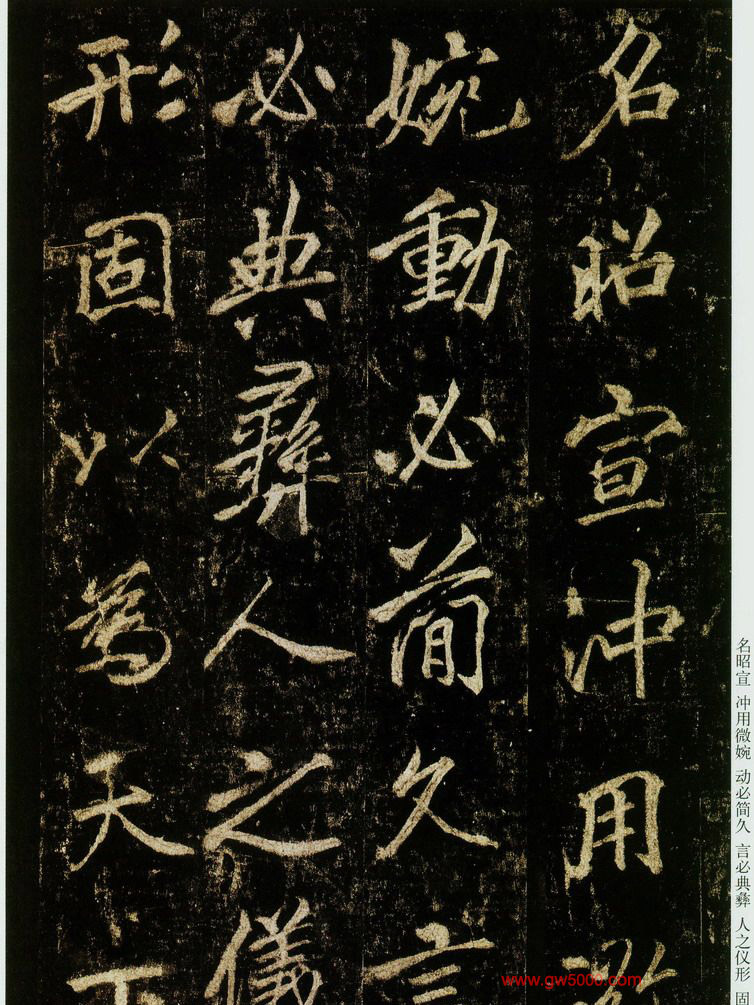 名昭宣冲用
婉動必简久言
必典彝人之儀
形固以為天下
名昭宣 冲用微婉 动必简久 言必典彝 人之仪形 固
www.gw5000.com